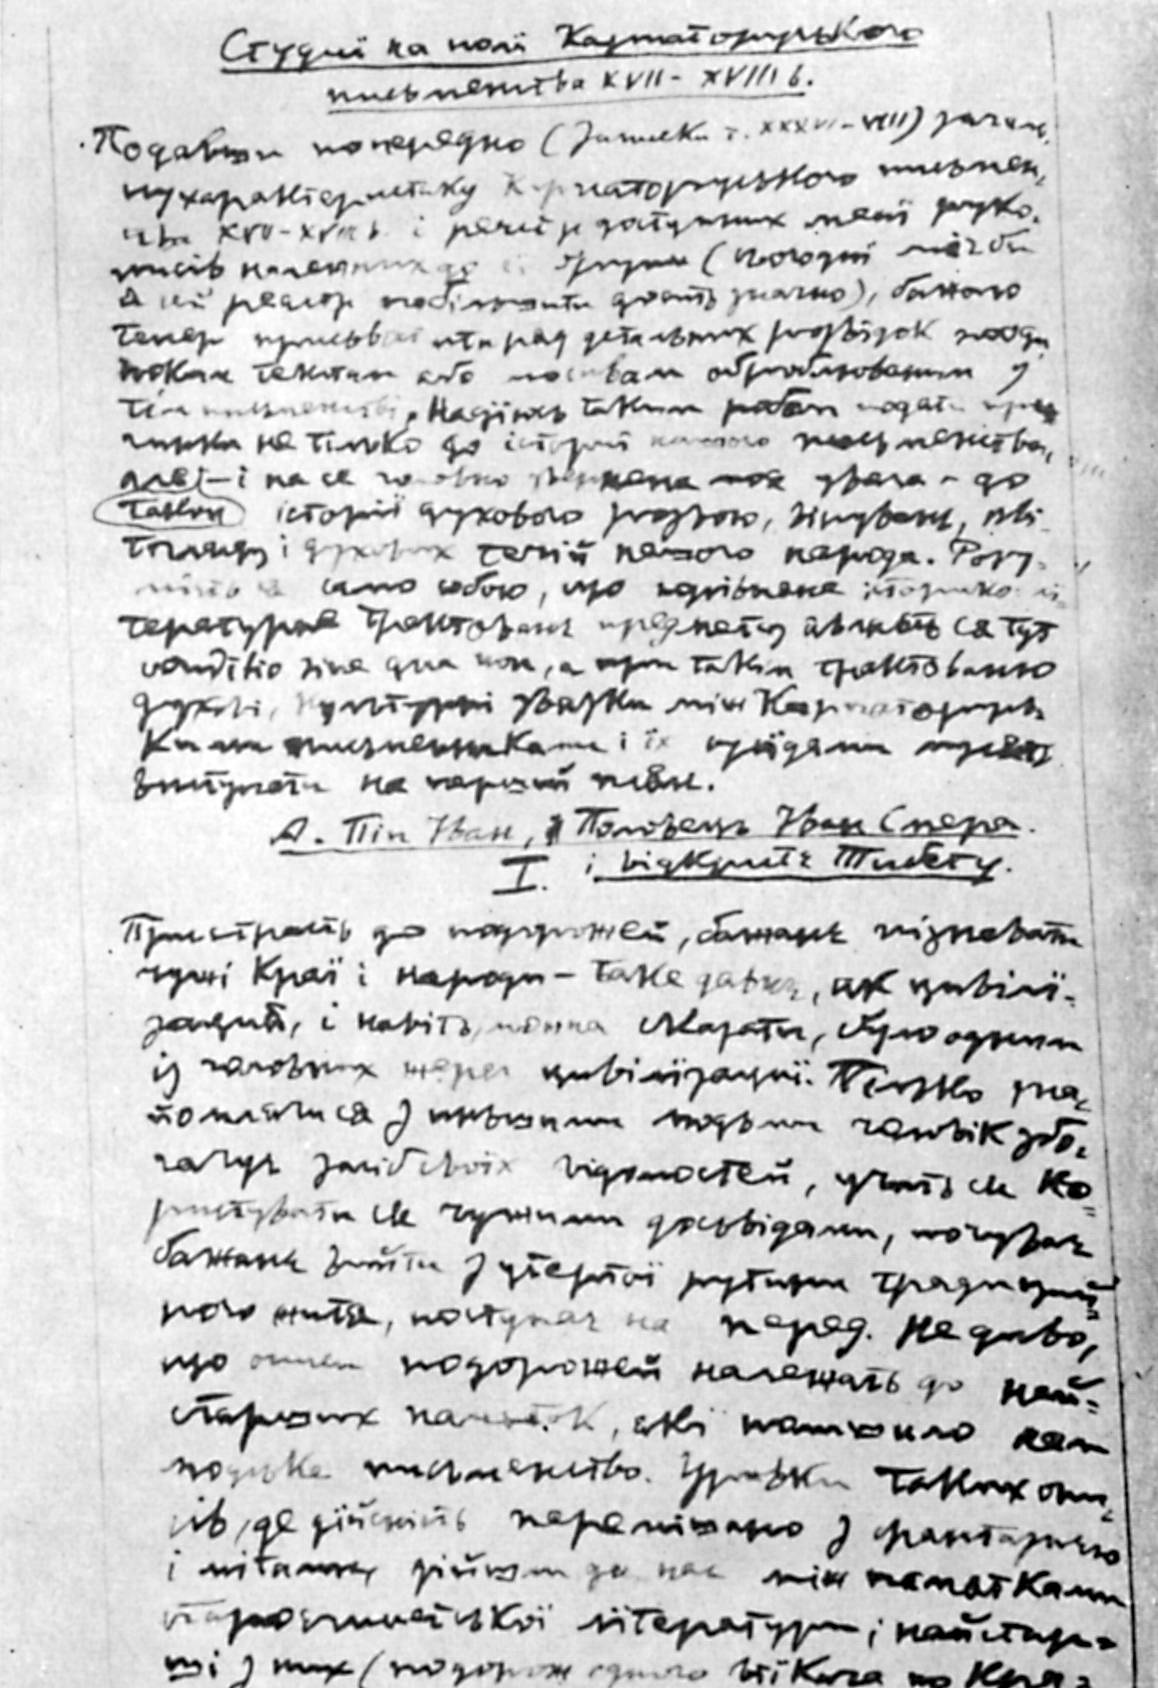 Студиї на полї Карпаторуського
письменства XVII-XVIII в.
Подавши попередно (Записки т. XXXVII-VIII) загаль-
ну характеристику Карпаторуського письмен-
ства XVII-XVIII в. і реєстр доступних менї руко-
писів належних до сї ґрупи (сьогоднї міг би
я сей реєстр побільшити досить значно), бажаю
тепер присьвятити ряд детальних розвідок пооди-
ноким текстам або мотивам обробленим у
тім письменстві. Надїюсь таким робом подати при-
чинки не тілько до істориї нашого письменства,
але — і на се головно звернена моя увага — до
істориї духового розвою, вірувань, сьві-
тогляду і духових течій нашого народа. Розу-
мієть ся само собою, що порівняне історико-лї-
тературне трактованє предмету являєть ся тут
conditio sine qua non, а при такім трактованю
духові, культурні звязки між Карпаторусь-
кими письменниками і їх сусїдами мусять
виступати на перший плян.
А. Піп Іван, Половець Іван Смера
I. і відкритє Тибету.
Пристрасть до подорожей, бажанє пізнавати
чужі краї і народи — таке давнє, як цивілї-
зация, і навіть, можна сказати, було одним
із головних жерел цивілїзациї. Тілько зна-
йомлячи ся з иньшими людьми чоловік збо-
гачує засіб своїх відомостей, учить ся ко-
ристувати ся чужими досьвідами, почуває
бажанє вийти з утертої рутини традицийно-
ного житя, поступає на перед. Не диво,
що описи подорожей належать до най-
старших памяток, які полишило нам
людське письменство. Уривки таких опи-
сів, де дїйсність перемішано з фантазиєю
і мітами, дійшли до нас між памятками
староєгипетської лїтератури і найстар-
ші з них (подорож одного втїкача по Кра-